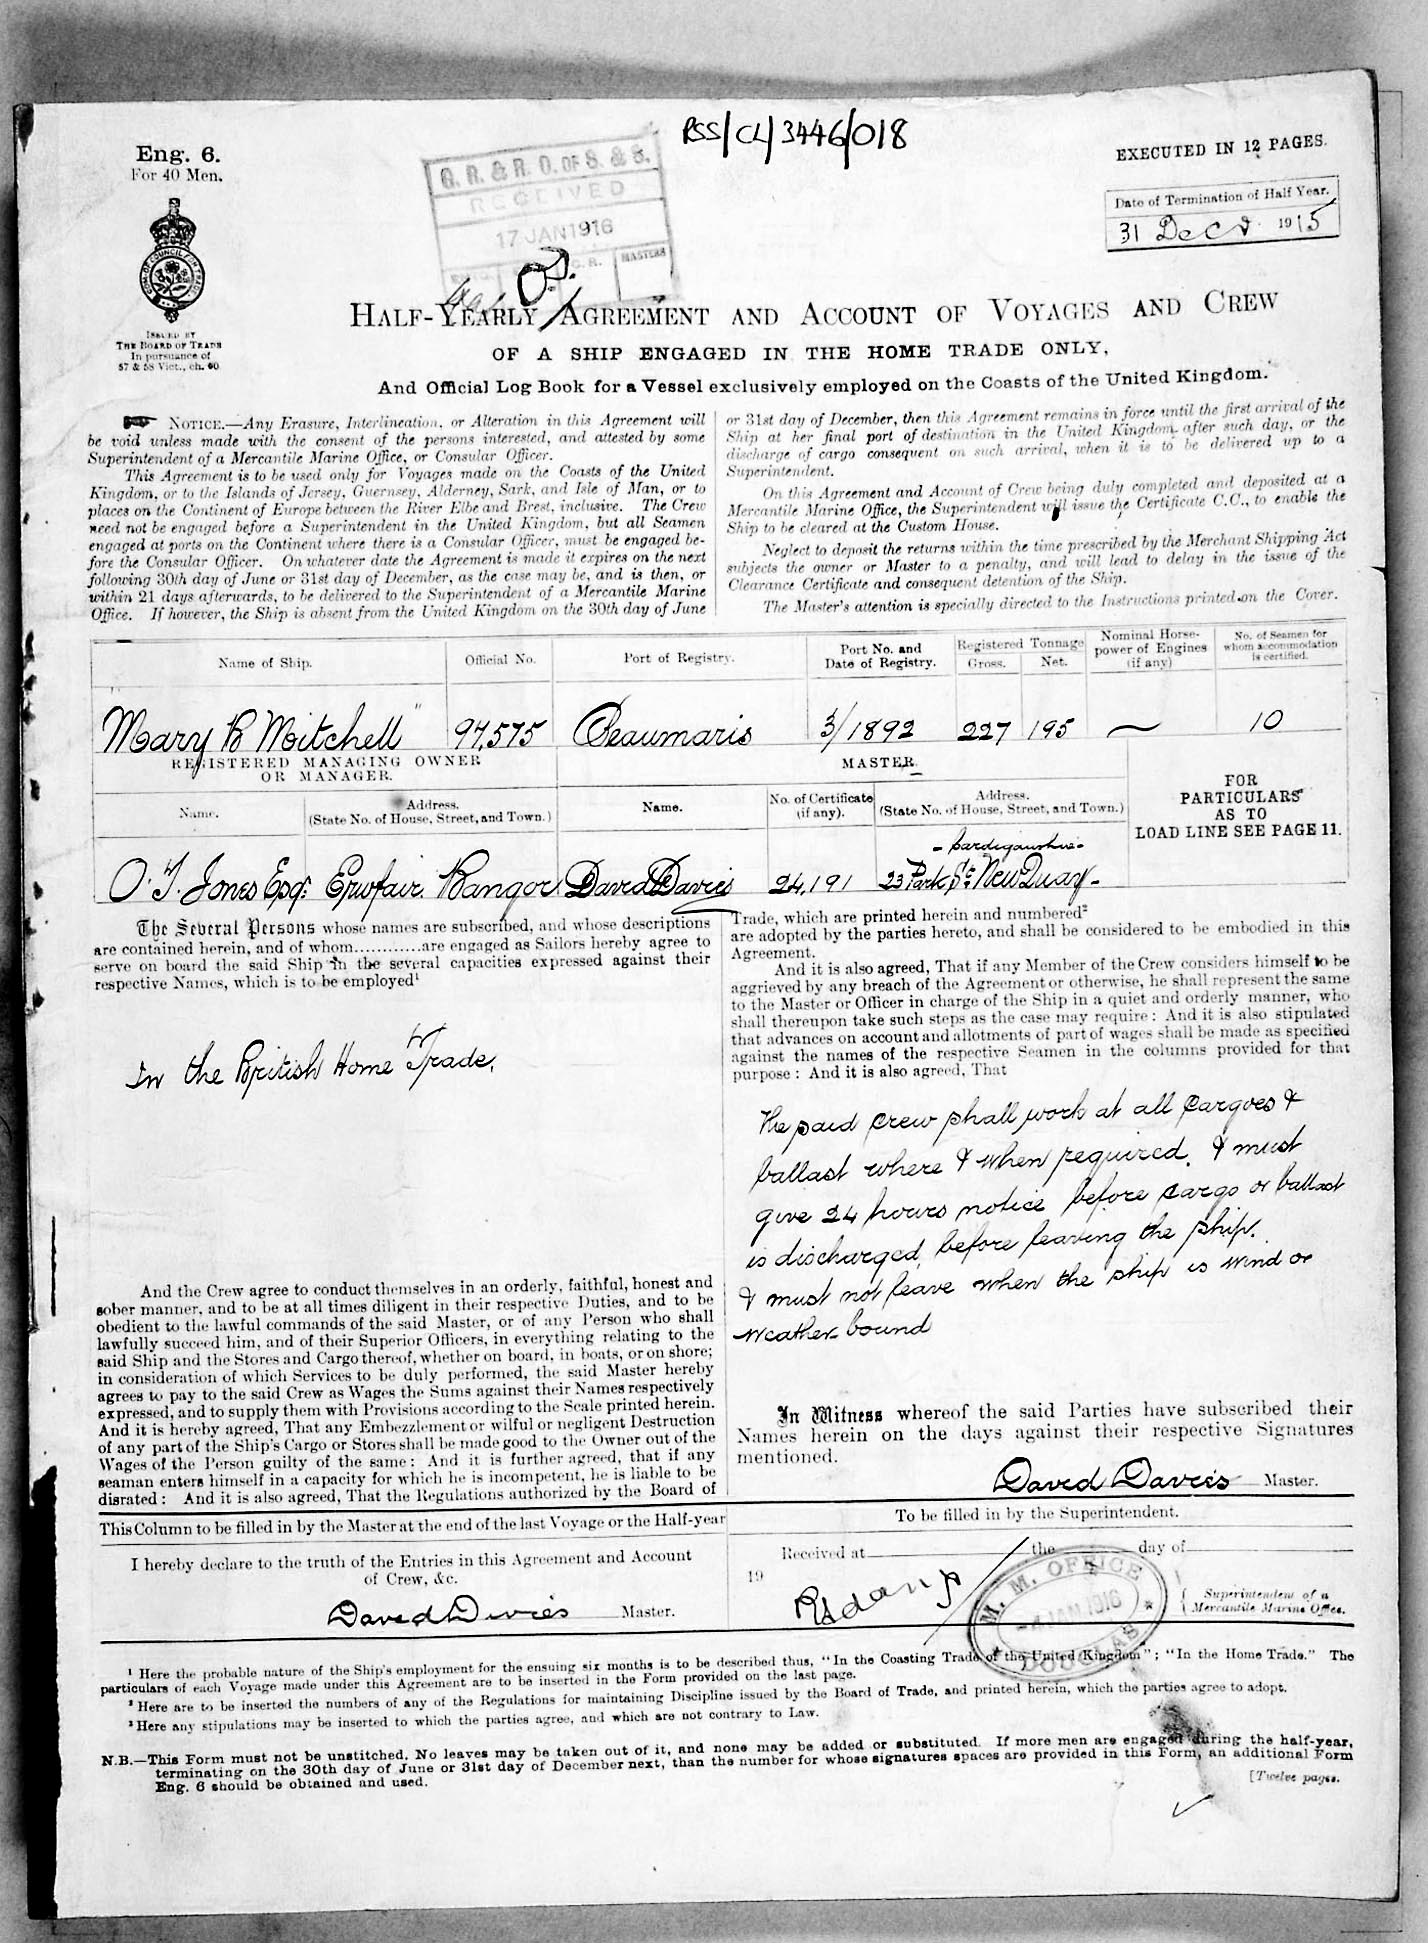 BSS/CL/3446/018
Eng. 6.
For 40 Men.
ISSUED BY
THE BOARD OF TRADE
In pursuance of
57 & 58 Vict., ch. 60
G. R. & R. O. OF S. & S.
RECEIVED
17 JAN 1916
MASTERS
EXECUTED IN 12 PAGES.
Date of Termination of Half Year.
31 Decr 1915
HALF-YEARLY AGREEMENT AND ACCOUNT OF VOYAGES AND CREW
OF A SHIP ENGAGED IN THE HOME TRADE ONLY,
And Official Log Book for a Vessel exclusively employed on the Coasts of the United Kingdom.
NOTICE.—Any Erasure, Interlineation, or Alteration in this Agreement will
be void unless made with the consent of the persons interested, and attested by some
Superintendent of a Mercantile Marine Office, or Consular Officer.
This Agreement is to be used only for Voyages made on the Coasts of the United
Kingdom, or to the Islands of Jersey, Guernsey, Alderney, Sark, and Isle of Man, or to
places on the Continent of Europe between the River Elbe and Brest, inclusive. The Crew
need not be engaged before a Superintendent in the United Kingdom, but all Seamen
engaged at ports on the Continent where there is a Consular Officer, must be engaged be-
fore the Consular Officer. On whatever date the Agreement is made it expires on the next
following 30th day of June or 31st day of December, as the case may be, and is then, or
within 21 days afterwards, to be delivered to the Superintendent of a Mercantile Marine
Office. If however, the Ship is absent from the United Kingdom on the 30th day of June
or 31st day of December, then this Agreement remains in force until the first arrival of the
Ship at her final port of destination in the United Kingdom after such day, or the
discharge of cargo consequent on such arrival, when it is to be delivered up to a
Superintendent.
On this Agreement and Account of Crew being duly completed and deposited at a
Mercantile Marine Office, the Superintendent will issue the Certificate C.C., to enable the
Ship to be cleared at the Custom House.
Neglect to deposit the returns within the time prescribed by the Merchant Shipping Act
subjects the owner or Master to a penalty, and will lead to delay in the issue of the
Clearance Certificate and consequent detention of the Ship.
The Master's attention is specially directed to the Instructions printed on the Cover.
Name of Ship.
Official No.
Port of Registry.
Port No. and
Date of Registry.
Registered Tonnage
Gross.
Net.
Nominal Horse-
power of Engines
(if any)
No. of Seamen for
whom accommodation
is certified.
Mary B Mitchell" 97,575 Beaumaris 3/1892 227 195 — 10
REGISTERED MANAGING OWNER
OR MANAGER.
MASTER.
Name.
Address.
(State No. of House, Street, and Town.)
Name.
No. of Certificate
(if any).
Address.
(State No. of House, Street, and Town.)
FOR
PARTICULARS
AS TO
LOAD LINE SEE PAGE 11.
- Cardiganshire -
O. T. Jones Esq. Erwfair. Bangor David Davies 24,191 23 Park St. New Quay -
The Several Persons whose names are subscribed, and whose descriptions
are contained herein, and of whom............are engaged as Sailors hereby agree to
serve on board the said Ship in the several capacities expressed against their
respective Names, which is to be employed¹
In the British Home Trade.
And the Crew agree to conduct themselves in an orderly, faithful, honest and
sober manner, and to be at all times diligent in their respective Duties, and to be
obedient to the lawful commands of the said Master, or of any Person who shall
lawfully succeed him, and of their Superior Officers, in everything relating to the
said Ship and the Stores and Cargo thereof, whether on board, in boats, or on shore;
in consideration of which Services to be duly performed, the said Master hereby
agrees to pay to the said Crew as Wages the Sums against their Names respectively
expressed, and to supply them with Provisions according to the Scale printed herein.
And it is hereby agreed, That any Embezzlement or wilful or negligent Destruction
of any part of the Ship's Cargo or Stores shall be made good to the Owner out of the
Wages of the Person guilty of the same: And it is further agreed, that if any
seaman enters himself in a capacity for which he is incompetent, he is liable to be
disrated: And it is also agreed, That the Regulations authorized by the Board of
Trade, which are printed herein and numbered²
are adopted by the parties hereto, and shall be considered to be embodied in this
Agreement.
And it is also agreed, That if any Member of the Crew considers himself to be
aggrieved by any breach of the Agreement or otherwise, he shall represent the same
to the Master or Officer in charge of the Ship in a quiet and orderly manner, who
shall thereupon take such steps as the case may require: And it is also stipulated
that advances on account and allotments of part of wages shall be made as specified
against the names of the respective Seamen in the columns provided for that
purpose: And it is also agreed, That
The said crew shall work at all cargoes &
ballast where & when required. & must
give 24 hours notice before cargo or ballast
is discharged, before leaving the ship.
& must not leave when the ship is wind or
weather-bound
In Witness whereof the said Parties have subscribed their
Names herein on the days against their respective Signatures
mentioned.
David Davies Master.
This Column to be filled in by the Master at the end of the last Voyage or the Half-year
I hereby declare to the truth of the Entries in this Agreement and Account
of Crew, &c.
David Davies Master.
To be filled in by the Superintendent.
Received at the day of
19
Superintendent of a
Mercantile Marine Office.
M. M. OFFICE
-4 JAN 1916
DOUGLAS
¹ Here the probable nature of the Ship's employment for the ensuing six months is to be described thus, "In the Coasting Trade of the United Kingdom"; "In the Home Trade." The
particulars of each Voyage made under this Agreement are to be inserted in the Form provided on the last page.
² Here are to be inserted the numbers of any of the Regulations for maintaining Discipline issued by the Board of Trade, and printed herein, which the parties agree to adopt.
³ Here any stipulations may be inserted to which the parties agree, and which are not contrary to Law.
N.B.—This Form must not be unstitched. No leaves may be taken out of it, and none may be added or substituted. If more men are engaged during the half-year,
terminating on the 30th day of June or 31st day of December next, than the number for whose signatures spaces are provided in this Form, an additional Form
Eng. 6 should be obtained and used.
[Twelve pages.